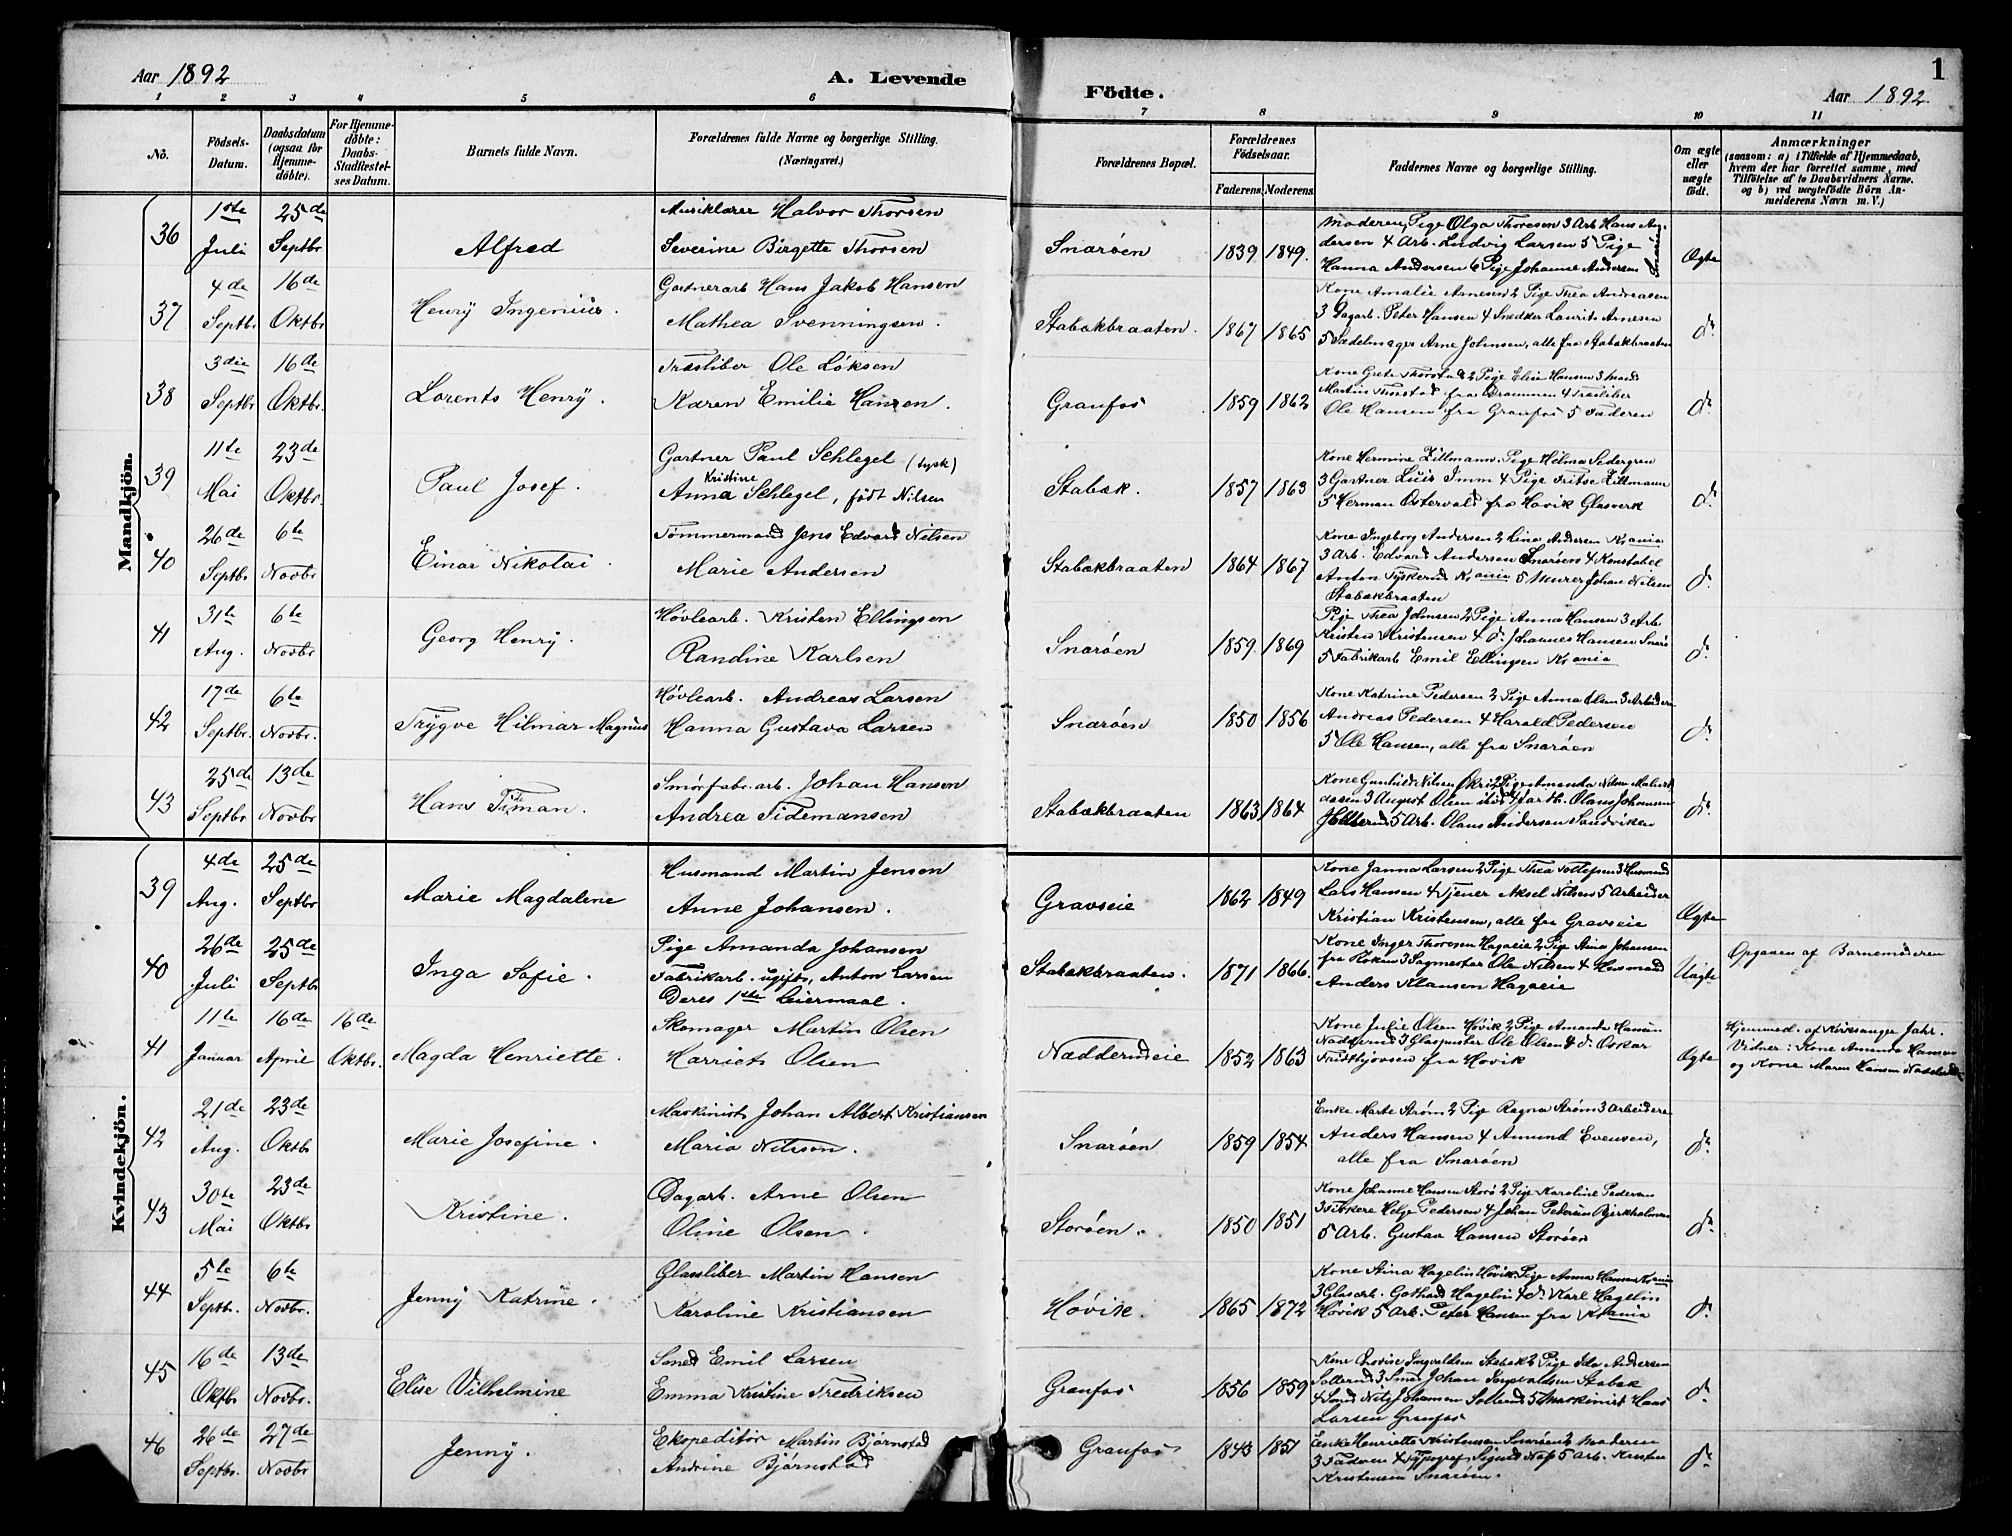 Aar 1892
A. Levende
Födte.
Aar 1892.
1
1 2 3 4 5 6 7 8 9 10 11
No.
Födsels-
Datum.
Daabsdatum
(ogsaa for
Hjemme-
döbte).
For Hjemme-
döbte:
Daabs-
Stadfestel-
ses Datum.
Barnets fulde Navn.
Forældrenes fulde Navne og borgerlige Stilling.
(Næringsvei.)
Forældrenes Bopæl.
Forældrenes
Födselsaar.
Faderens. Moderens.
Faddernes Navne og borgerlige Stilling.
Om ægte
eller
uægte
födt.
Anmærkninger
(saasom: a) i Tilfælde af Hjemmedaab,
hvem der har forrettet samme, med
Tilföielse af to Daabsvidners Navne.
og b) ved uægtefödte Börn An-
melderens Navn m. V.)
Mandkjön.
36
1ste
Juli
25de
Septbr
Alfred
Musiklærer Halvor Thorsen
Severine Birgette Thorsen
Snarøen
1839 1849.
Moderen, Pige Olga Thoresen 3 Arb Hans An-
dersen 4 Arb. Ludvig Larsen 5 Pige
Hanna Andersen 6 Pige Johanne Andersen
Ægte
37
4de
Septbr
16de
Oktbr
Henry Ingenius.
Gartnerarb Hans Jakob Hansen
Mathea Svenningsen.
Stabækbraaten.
1867 1865
Kone Amalie Arnesen 2 Pige Thea Andreasen
3 Dagarb. Peter Hansen 4 Snedker Laurits Arnesen
5 Sadelmager Arne Johnsen, alle fra Stabækbraaten
do
38
3die
Septbr
16de
Oktbr.
Lorents Henry.
Træsliber Ole Løksen
Karen Emilie Hansen.
Granfos
1859 1862
Kone Grete Thorstad 2 Pige Elise Hansen 3 Mand
Martin Thorstad fra Drammen 4 Træsliber
Ole Hansen fra Granfos 5 Faderen
do
39
11te
Mai
23de
Oktbr.
Paul Josef.
Gartner Paul Schlegel (tysk)
Kristine
Anna Schlegel, født Nilsen
Stabæk.
1857 1863
Kone Hermine Zillmann. Pige Hilma Sedergren
3 Gartner Luis Imm 4 Pige Fritse Zillmann
5 Herman Ostervald fra Høvik Glasverk
do
40
26de
Septbr
6te
Novbr
Einar Nikolai.
Tømmermand Jens Edvard Nilsen
Marie Andersen
Stabækbraaten
1864 1867
Kone Ingeborg Andersen 2 Lina Andersen Krania
3 Arb. Edvard Andersen Snarøens 4 Konstabel
Anton Tyskerud Krania 5 Murer Johan Nilsen
Stabækbraaten
do
41
31te
Aug.
6te
Novbr
Georg Henry.
Høvlearb. Kristen Ellingsen
Randine Karlsen
Snarøen
1859. 1869
Pige Thea Johnsen 2 Pige Anna Hansen 3 Arb.
Kristen Kristensen 4 do Johannes Hansen Snarø
5 Fabrikarb Emil Ellingsen Krania
do
42
17de
Septbr.
6te
Novbr.
Trygve Hilmar Magnus
Høvlearb. Andreas Larsen
Hanna Gustava Larsen
Snarøen
1850 1856
Kone Katrine Pedersen 2 Pige Anna Olsen 3 Arbeider
Andreas Pedersen 4 Harald Pedersen
5 Ole Hansen, alle fra Snarøen
do
43
25de
Septbr
13de
Novbr
Hans
Smørfabr. arb. Johan Hansen
Andrea Tidemansen
Stabækbraaten
1863 1864
Kone Gunhild Nilsen 2 Pige Amanda Nilsen
3 August Olsen Olaus Johansen
5 Arb. Olaus Andersen Sandviken
do
Kvindekjön.
39
4de
Aug.
25de
Septbr
Marie Magdalene
Husmand Martin Jensen
Anne Johansen.
Gravseie
1862 1849
Kone Janna Larsen 2 Pige Thea Tollefsen 3 Husmand
Lars Hansen 4 Tjener Aksel Nilsen 5 Arbeider
Kristian Kristensen, alle fra Gravseie
Ægte
40
26de
Juli
25de
Septbr
Inga Sofie.
Pige Amanda Johansen
Fabrikarb. ugifte, Anton Larsen
Deres 1ste Leiermaal.
Stabækbraaten.
1871 1866.
Kone Inger Thoresen Hagaeie 2 Pige Aina Johansen
fra 3 Sagmester Ole Nilsen 4 Husmand
Anders Klausen Hagaeie
Uægte
Opgaven af Barnemoderen
41
11te
Januar
16de
April
16de
Oktbr.
Magda Henriette.
Skomager Martin Olsen
Harriet Olsen
Nadderudeie
1852 1863
Kone Julie Olsen Høvik 2 Pige Amanda Hansen
Nadderud 3 Glaspuster Ole Olsen 4 do Oskar
Fridthjovsen fra Høvik
Ægte
Hjemmed. af Kirkesanger Jahr.
Vidner: Kone Amunda Hansen
og Kone Maren Hansen
42
21de
Aug.
23de
Oktbr
Marie Josefine.
Maskinist Johan Albert Kristiansen
Maria Nilsson.
Snarøen
1859 1854
Enke Marte Strøm 2 Pige Ragna Strøm 3 Arbeidere
Anders Hansen 4 Amund Evensen,
alle fra Snarøen
do
43
30te
Mai
23de
Oktbr
Kristine.
Dagarb. Arne Olsen
Oline Olsen.
Storøen.
1850 1851
Kone Johanne Hansen Storø 2 Pige Karoline Pedersen
3 Fiskere Helge Pedersen 4 Johan Pedersen Bjerkholmen
5 Arb. Gustav Hansen Storøen
do
44
5te
Septbr.
6te
Novbr.
Jenny Katrine.
Glassliber Martin Hansen
Karoline Kristiansen
Høvik
1865 1872
Kone Stina Hagelin Høvik. Pige Anna Hansen Krania
3 Glasarb. Gothard Hagelin 4 do Karl Hagelin
Høvik 5 Arb. Peter Hansen fra Krania
do
45
16de
Oktbr
13de
Novbr.
Elise Vilhelmine
Smed Emil Larsen
Emma Kristine Fredriksen
Granfos
1856 1859
Kone Lovise Ingvaldsen Stabæk 2 Pige Ida Andersen
Sollerud 3 Smed Johan Ingvaldsen Stabæk
4 Smed Nils Johansen Sollerud 5 Maskinist Hans
Larsen Granfos
do
46
26de
Septbr.
27de
Novbr.
Jenny.
Ekspeditør Martin Bjørnstad
Andrine Bjørnstad
Granfos
1843 1851
Enke Henriette Kristensen Snarøen 2 Moderen
3 Faderen 4 Typograf Sigurd Næss 5 Arb. Kristen
Kristensen Snarøen.
do